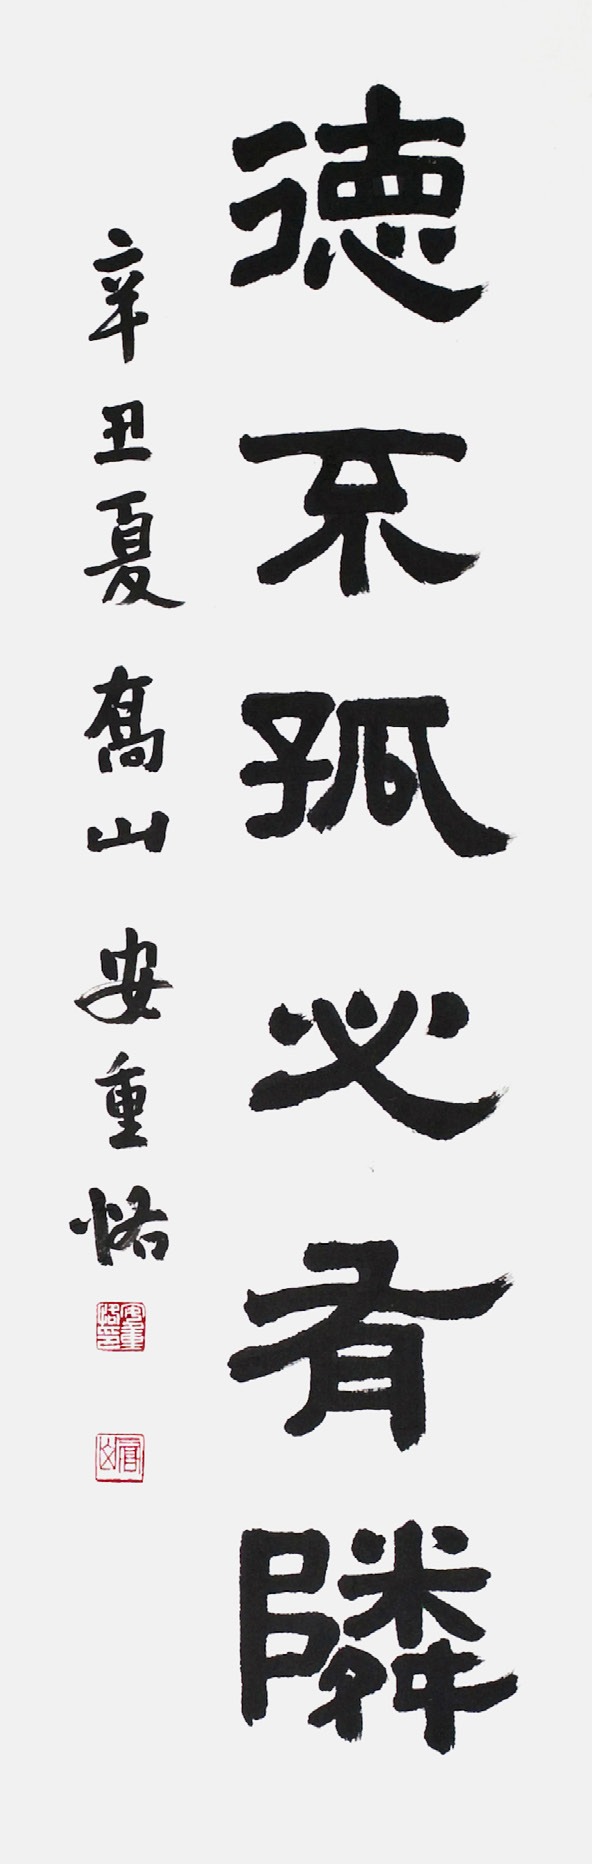 徳不孤必有隣
辛丑夏 高山 安重恪